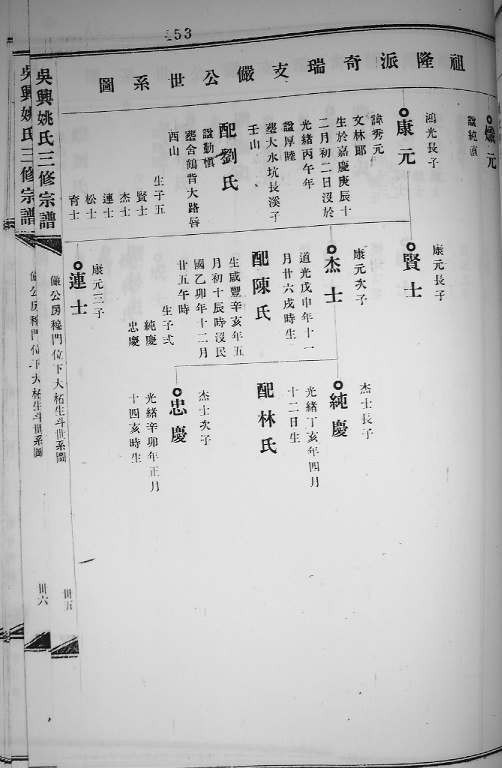 453
祖隆派奇瑞支儼公世系圖
元
謚純直
鴻光長子
康元
諱秀元
文林郎
生於嘉慶庚辰十
二月初二日沒於
光緒丙午年
謚厚陸
塟大水坑長溪子
壬山
配劉氏
謚勤慎
塟舍鷂背大路唇
酉山
生子五
賢士
杰士
連士
松士
育士
康元長子
賢士
康元次子
杰士
道光戊申年十一
月廿六戌時生
配陳氏
生咸豐辛亥年五
月初十辰時沒民
國乙卯年十二月
廿五午時
生子弍
純慶
忠慶
康元三子
蓮士
杰士長子
純慶
光緒丁亥年四月
十二日生
配林氏
杰士次子
忠慶
光緒辛卯年正月
十四亥時生
吳興姚氏三修宗譜
儼公房積門位下大柘生斗世系圖
卅五
吳興姚氏三修宗譜
儼公房積門位下大柘生斗世系圖
卅六